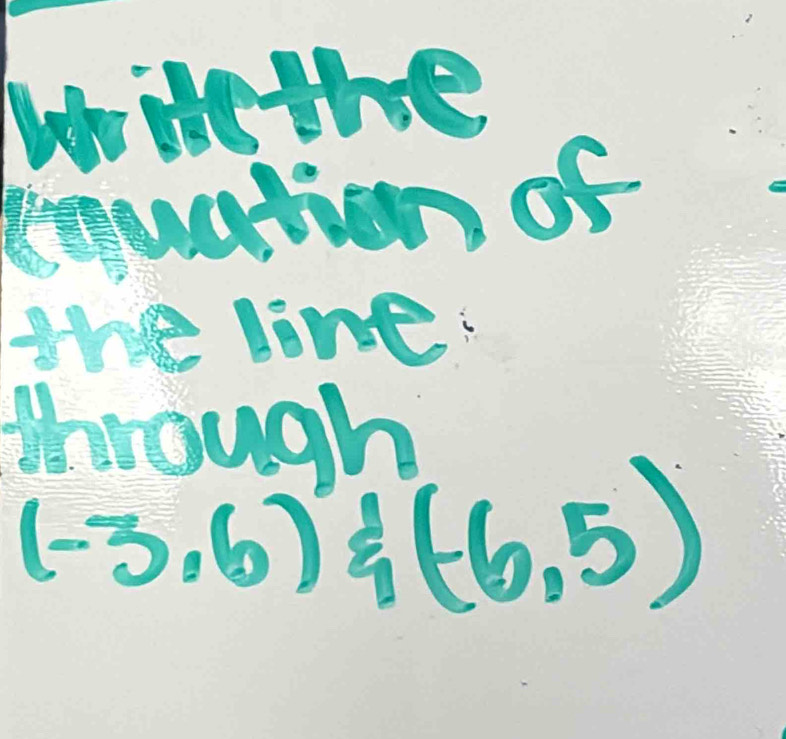 Write the
equation of
the line
through
(-3,6) & (-6,5)